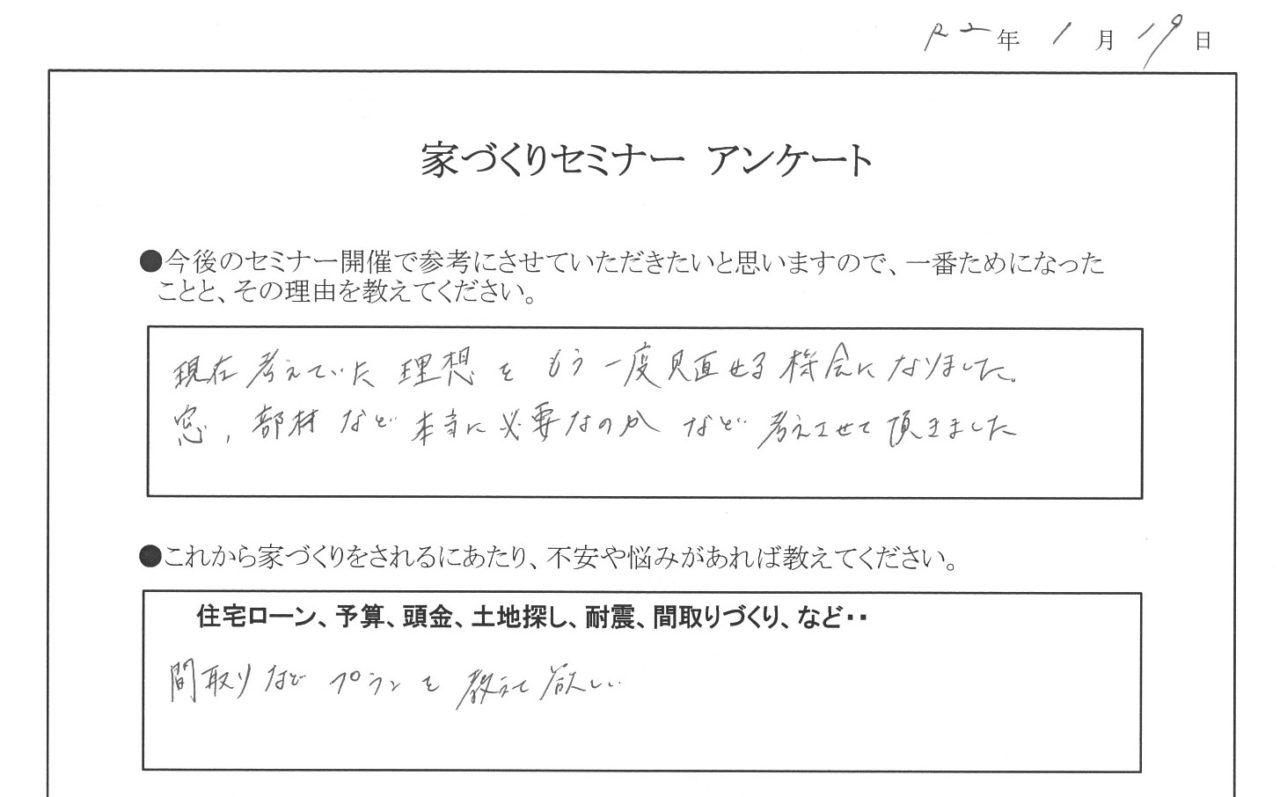 R2年 1月 19日
家づくりセミナー アンケート
●今後のセミナー開催で参考にさせていただきたいと思いますので、一番ためになった
ことと、その理由を教えてください。
現在考えていた理想をもう一度見直せる機会になりました。
窓、部材など本当に必要なのかなど考えさせて頂きました
●これから家づくりをされるにあたり、不安や悩みがあれば教えてください。
住宅ローン、予算、頭金、土地探し、耐震、間取りづくり、など・・
間取りなどプランを教えて欲しい